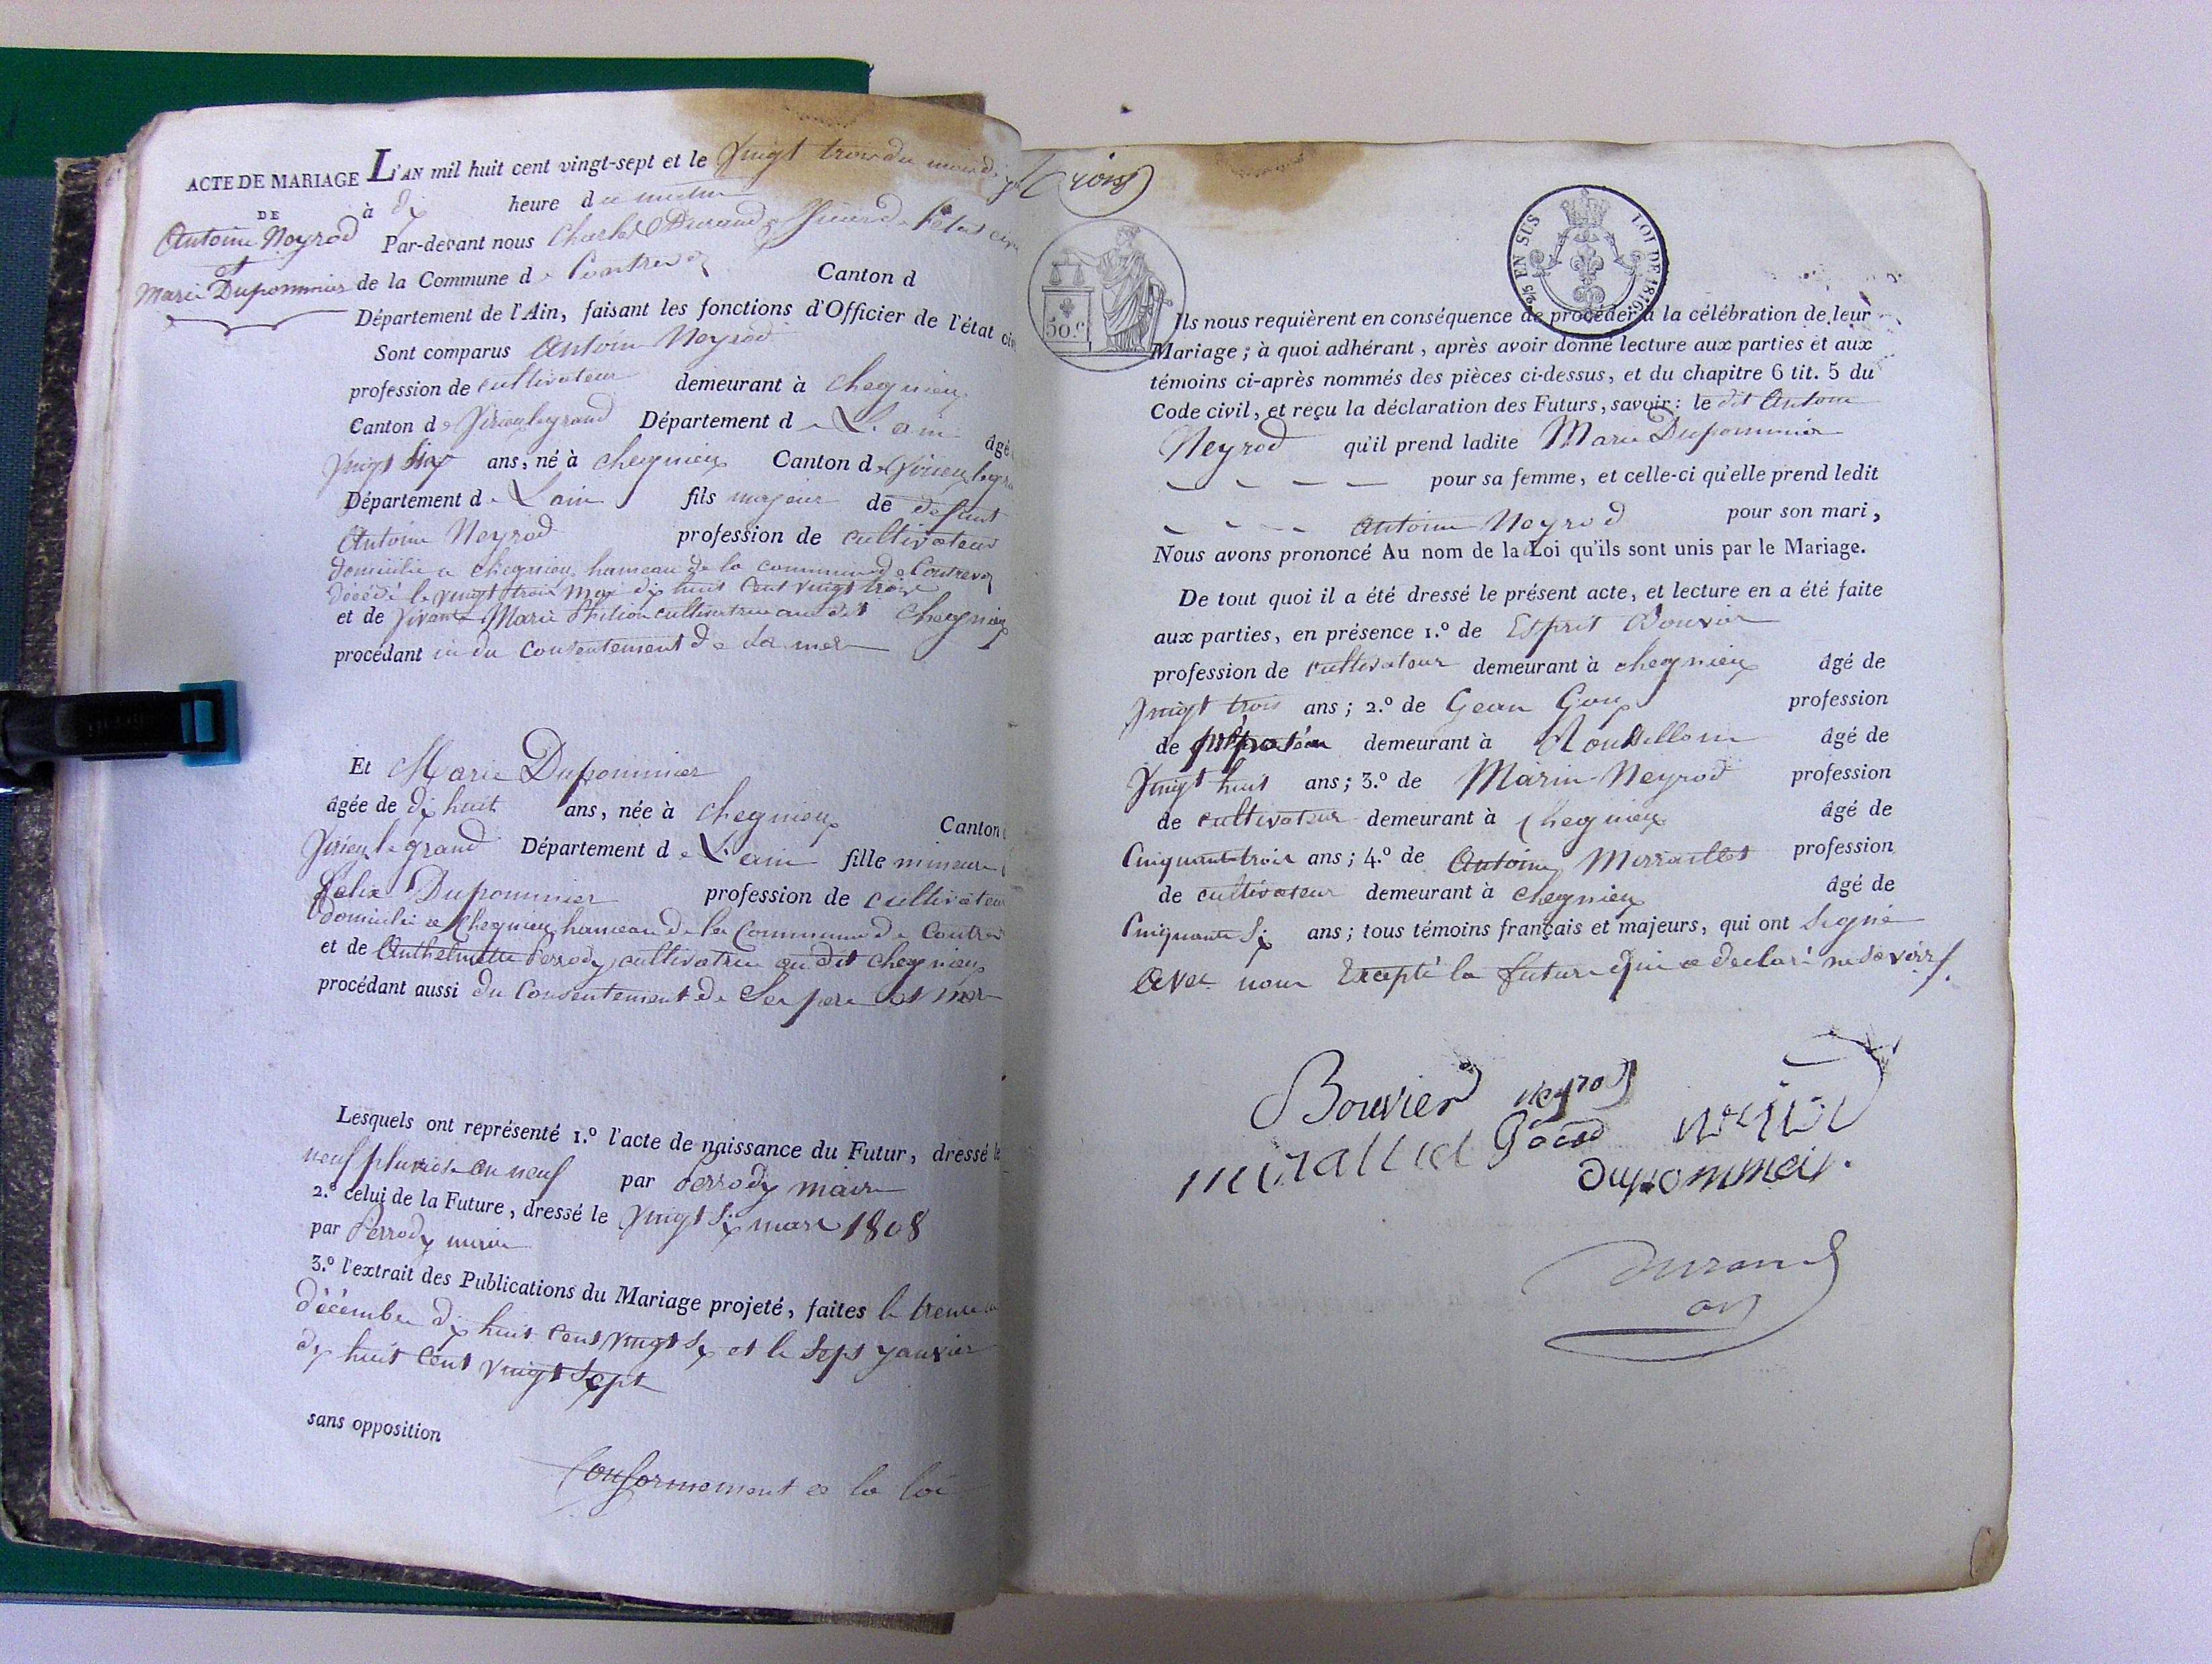 ACTE DE MARIAGE
DE
Antoine Neyrod
et
Marie Dupommier
L'AN mil huit cent vingt-sept et le Vingt trois du mois de
à dix heure du matin
Par-devant nous Charles Durand officier de l'état civ
de la Commune de Contrevoz Canton d
Département de l'Ain, faisant les fonctions d'Officier de l'état civ
Sont comparus Antoine Neyrod
profession de cultivateur demeurant à chegnieu
Canton de Virieu le grand Département de L'ain âgé
Vingt six ans, né à chegnieux Canton de Virieu le gra
Département de L'ain fils majeur de defunt
Antoine Neyrod profession de cultivateur
domicilié a chegnieu hameau de la commune de Contrevoz
décédé le vingt trois mai dix huit cent vingt trois
et de vivante Marie cultivatrice au dit chegnieu
procédant du Consentement de Sa mere
Et Marie Dupommier
âgée de dix huit ans, née à chegnieux Canton d
Virieu le grand Département de L'ain fille mineure
Felix Dupommier profession de cultivateur
domicilié a chegnieu hameau de la Commune de Contrevo
et de Anthelmette Perrody cultivatrice au dit chegnieu
procédant aussi du Consentement de Ses pere et mere
Lesquels ont représenté 1.º l'acte de naissance du Futur, dressé le
neuf pluviose an neuf par Perrody maire
2.º celui de la Future, dressé le vingt six mars 1808
par Perrody maire
3.º l'extrait des Publications du Mariage projeté, faites le trente
décembre dix huit cent vingt six et le sept janvier
dix huit cent vingt sept
sans opposition
Conformement a la loi
trois
2/5 EN SUS LOI DE 1816
50 c
Ils nous requièrent en conséquence de procéder à la célébration de leur
Mariage ; à quoi adhérant, après avoir donné lecture aux parties et aux
témoins ci-après nommés des pièces ci-dessus, et du chapitre 6 tit. 5 du
Code civil, et reçu la déclaration des Futurs, savoir : le dit Antoine
Neyrod qu'il prend ladite Marie Dupommier
pour sa femme, et celle-ci qu'elle prend ledit
Antoine Neyrod pour son mari,
Nous avons prononcé Au nom de la Loi qu'ils sont unis par le Mariage.
De tout quoi il a été dressé le présent acte, et lecture en a été faite
aux parties, en présence 1.º de Esprit Bouvier
profession de cultivateur demeurant à chegnieux âgé de
Vingt trois ans ; 2.º de Gean Goy profession
de demeurant à Rousillom âgé de
Vingt huit ans ; 3.º de Marin Neyrod profession
de cultivateur demeurant à chegnieux âgé de
Cinquante trois ans ; 4.º de Antoine Mirraillet profession
de cultivateur demeurant à chegnieux âgé de
Cinquante six ans ; tous témoins français et majeurs, qui ont signé
avec nous Excepté la future qui a declaré ne savoir
Bouvier neyrod
miralliet
dupommeir.
durand